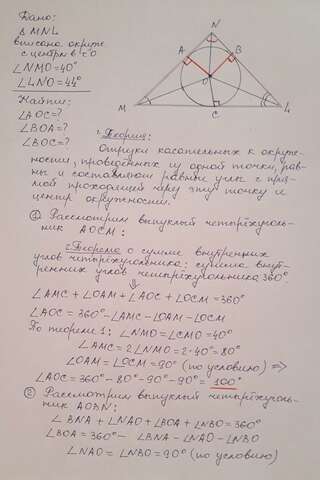 Дано:
Δ MNL
вписана окруж.
с центр. в т.О
∠NMO=40°
∠LNO=44°
Найти:
∠AOC=?
∠BOA=?
∠BOC=?
N
A
B
O
M
C
L
1. Теория:
Отрезки касательных к окруж-
ности, проведённых из одной точки, рав-
ны и составляют равные углы с пря-
мой проходящей через эту точку и
центр окружности.
① Рассмотрим выпуклый четырёхуголь-
ник AOCM:
2. Теорема о сумме внутренних
углов четырёхугольника: сумма внут-
ренних углов четырёхугольника 360°.
⇓
∠AMC + ∠OAM + ∠AOC + ∠OCM = 360°
∠AOC = 360° - ∠AMC - ∠OAM - ∠OCM
По теореме 1: ∠NMO = ∠CMO = 40°
∠AMC = 2∠NMO = 2·40° = 80°
∠OAM = ∠OCM = 90° (по условию) ⇒
∠AOC = 360° - 80° - 90° - 90° = 100°
② Рассмотрим выпуклый четырёхуголь-
ник AOBN:
∠BNA + ∠NAO + ∠BOA + ∠NBO = 360°
∠BOA = 360° - ∠BNA - ∠NAO - ∠NBO
∠NAO = ∠NBO = 90° (по условию)